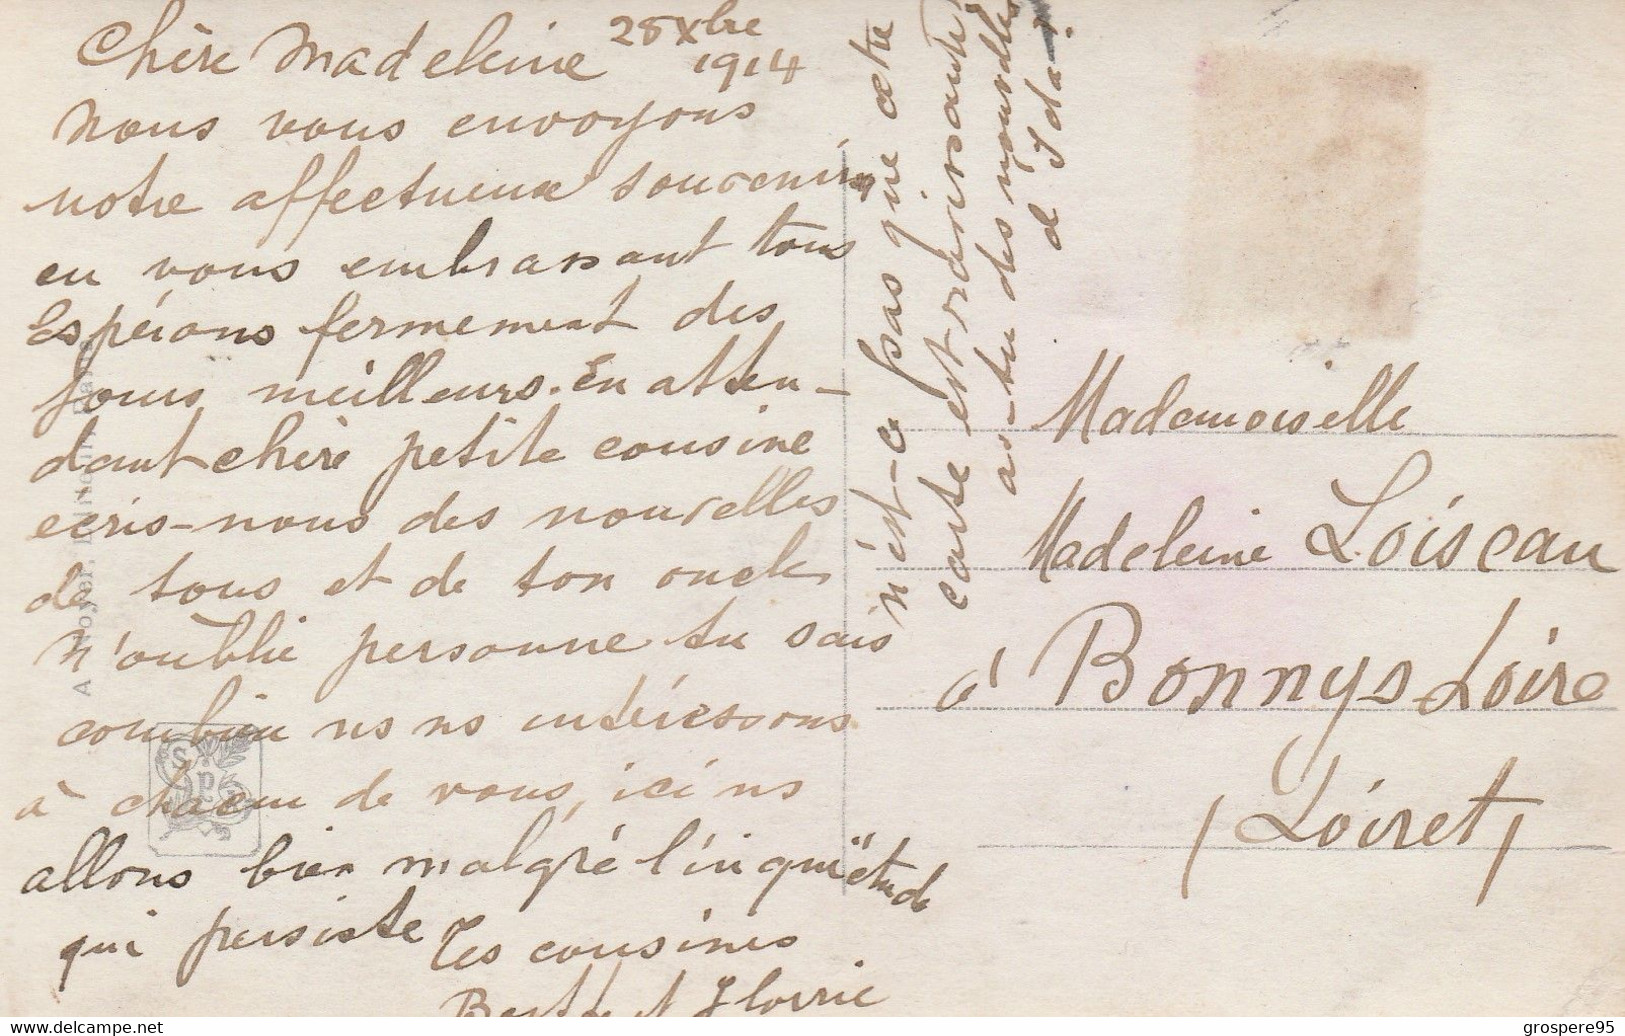 28 Xbre
1914
Chère Madeleine
Nous vous envoyons
notre affectueux souvenir
en vous embrassant tous
Espérons fermement des
jours meilleurs. En atten-
dant chère petite cousine
ecris-nous des nouvelles
de tous et de ton oncle
N'oublie personne tu sais
combien ns ns intéressons
à chacun de vous, ici ns
allons bien malgré l'inquiétude
qui persiste
Tes cousines
Berthe et
n'est-ce pas que cette
carte est ravissante
as-tu des nouvelles
d'Ida?
Mademoiselle
Madeleine Loiseau
à Bonny s Loire
(Loiret)
A Noyer,
SPB
grospere95